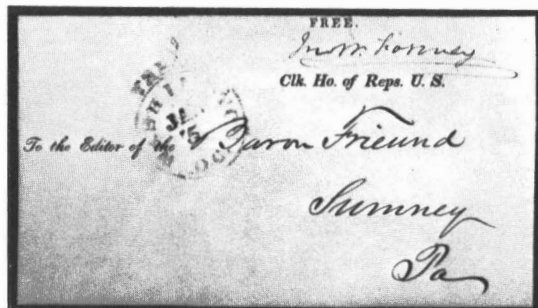 FREE.
Jno W. Forney
Clk. Ho. of Reps. U. S.
FREE
JAN
5
To the Editor of the Baron Frieund
Sumney
Pa